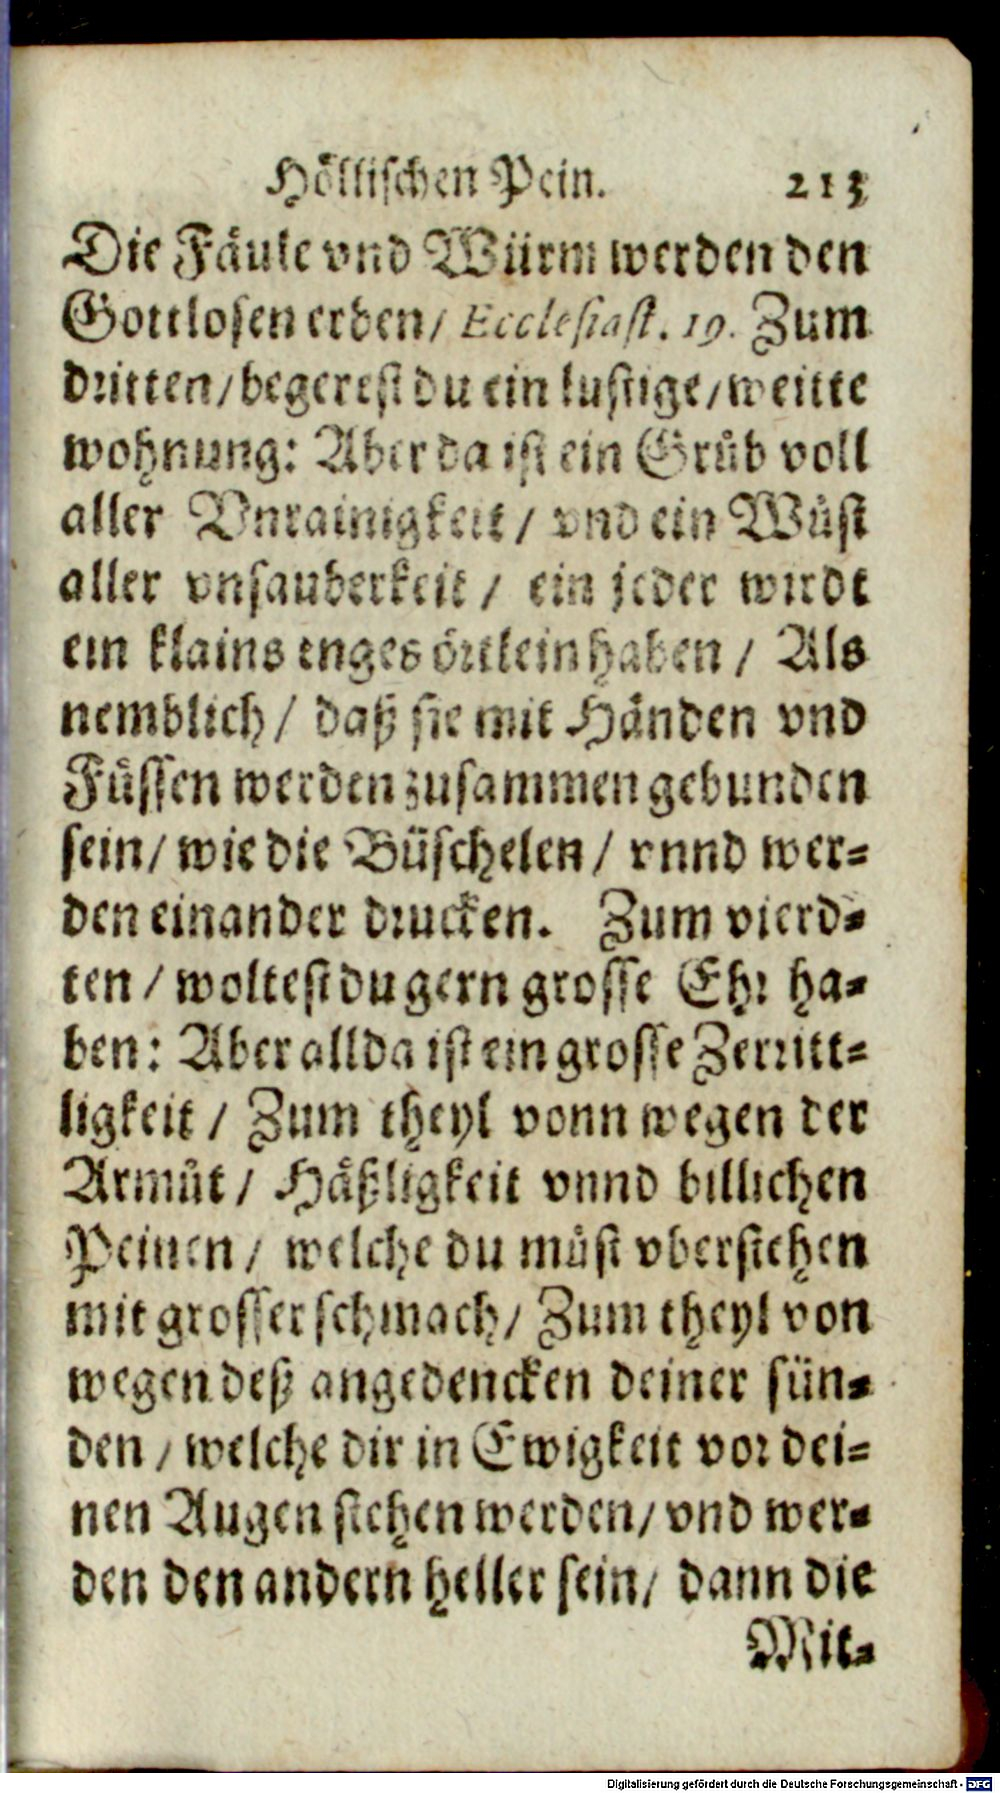 Höllischen Pein. 213
Die Fäule vnd Würm werden den
Gottlosen erben/ Ecclesiast. 19. Zum
dritten/ begerest du ein lustige/ weitte
wohnung: Aber da ist ein Grůb voll
aller Vnrainigkeit / vnd ein Wůst
aller vnsauberkeit / ein jeder wirdt
ein klains enges örtlein haben / Als
nemblich/ daß sie mit Händen vnd
Füssen werden zusammen gebunden
sein/ wie die Büschelen / vnnd wer-
den einander drucken. Zum vierd-
ten / woltest du gern grosse Ehr ha-
ben: Aber allda ist ein grosse Zerritt-
ligkeit / Zum theyl vonn wegen der
Armůt / Häßligkeit vnnd billichen
Peinen / welche du můst vberstehen
mit grosser schmach/ Zum theyl von
wegen deß angedencken deiner sün-
den / welche dir in Ewigkeit vor dei-
nen Augen stehen werden/ vnd wer-
den den andern heller sein/ dann die
Mit-
Digitalisierung gefördert durch die Deutsche Forschungsgemeinschaft - DFG